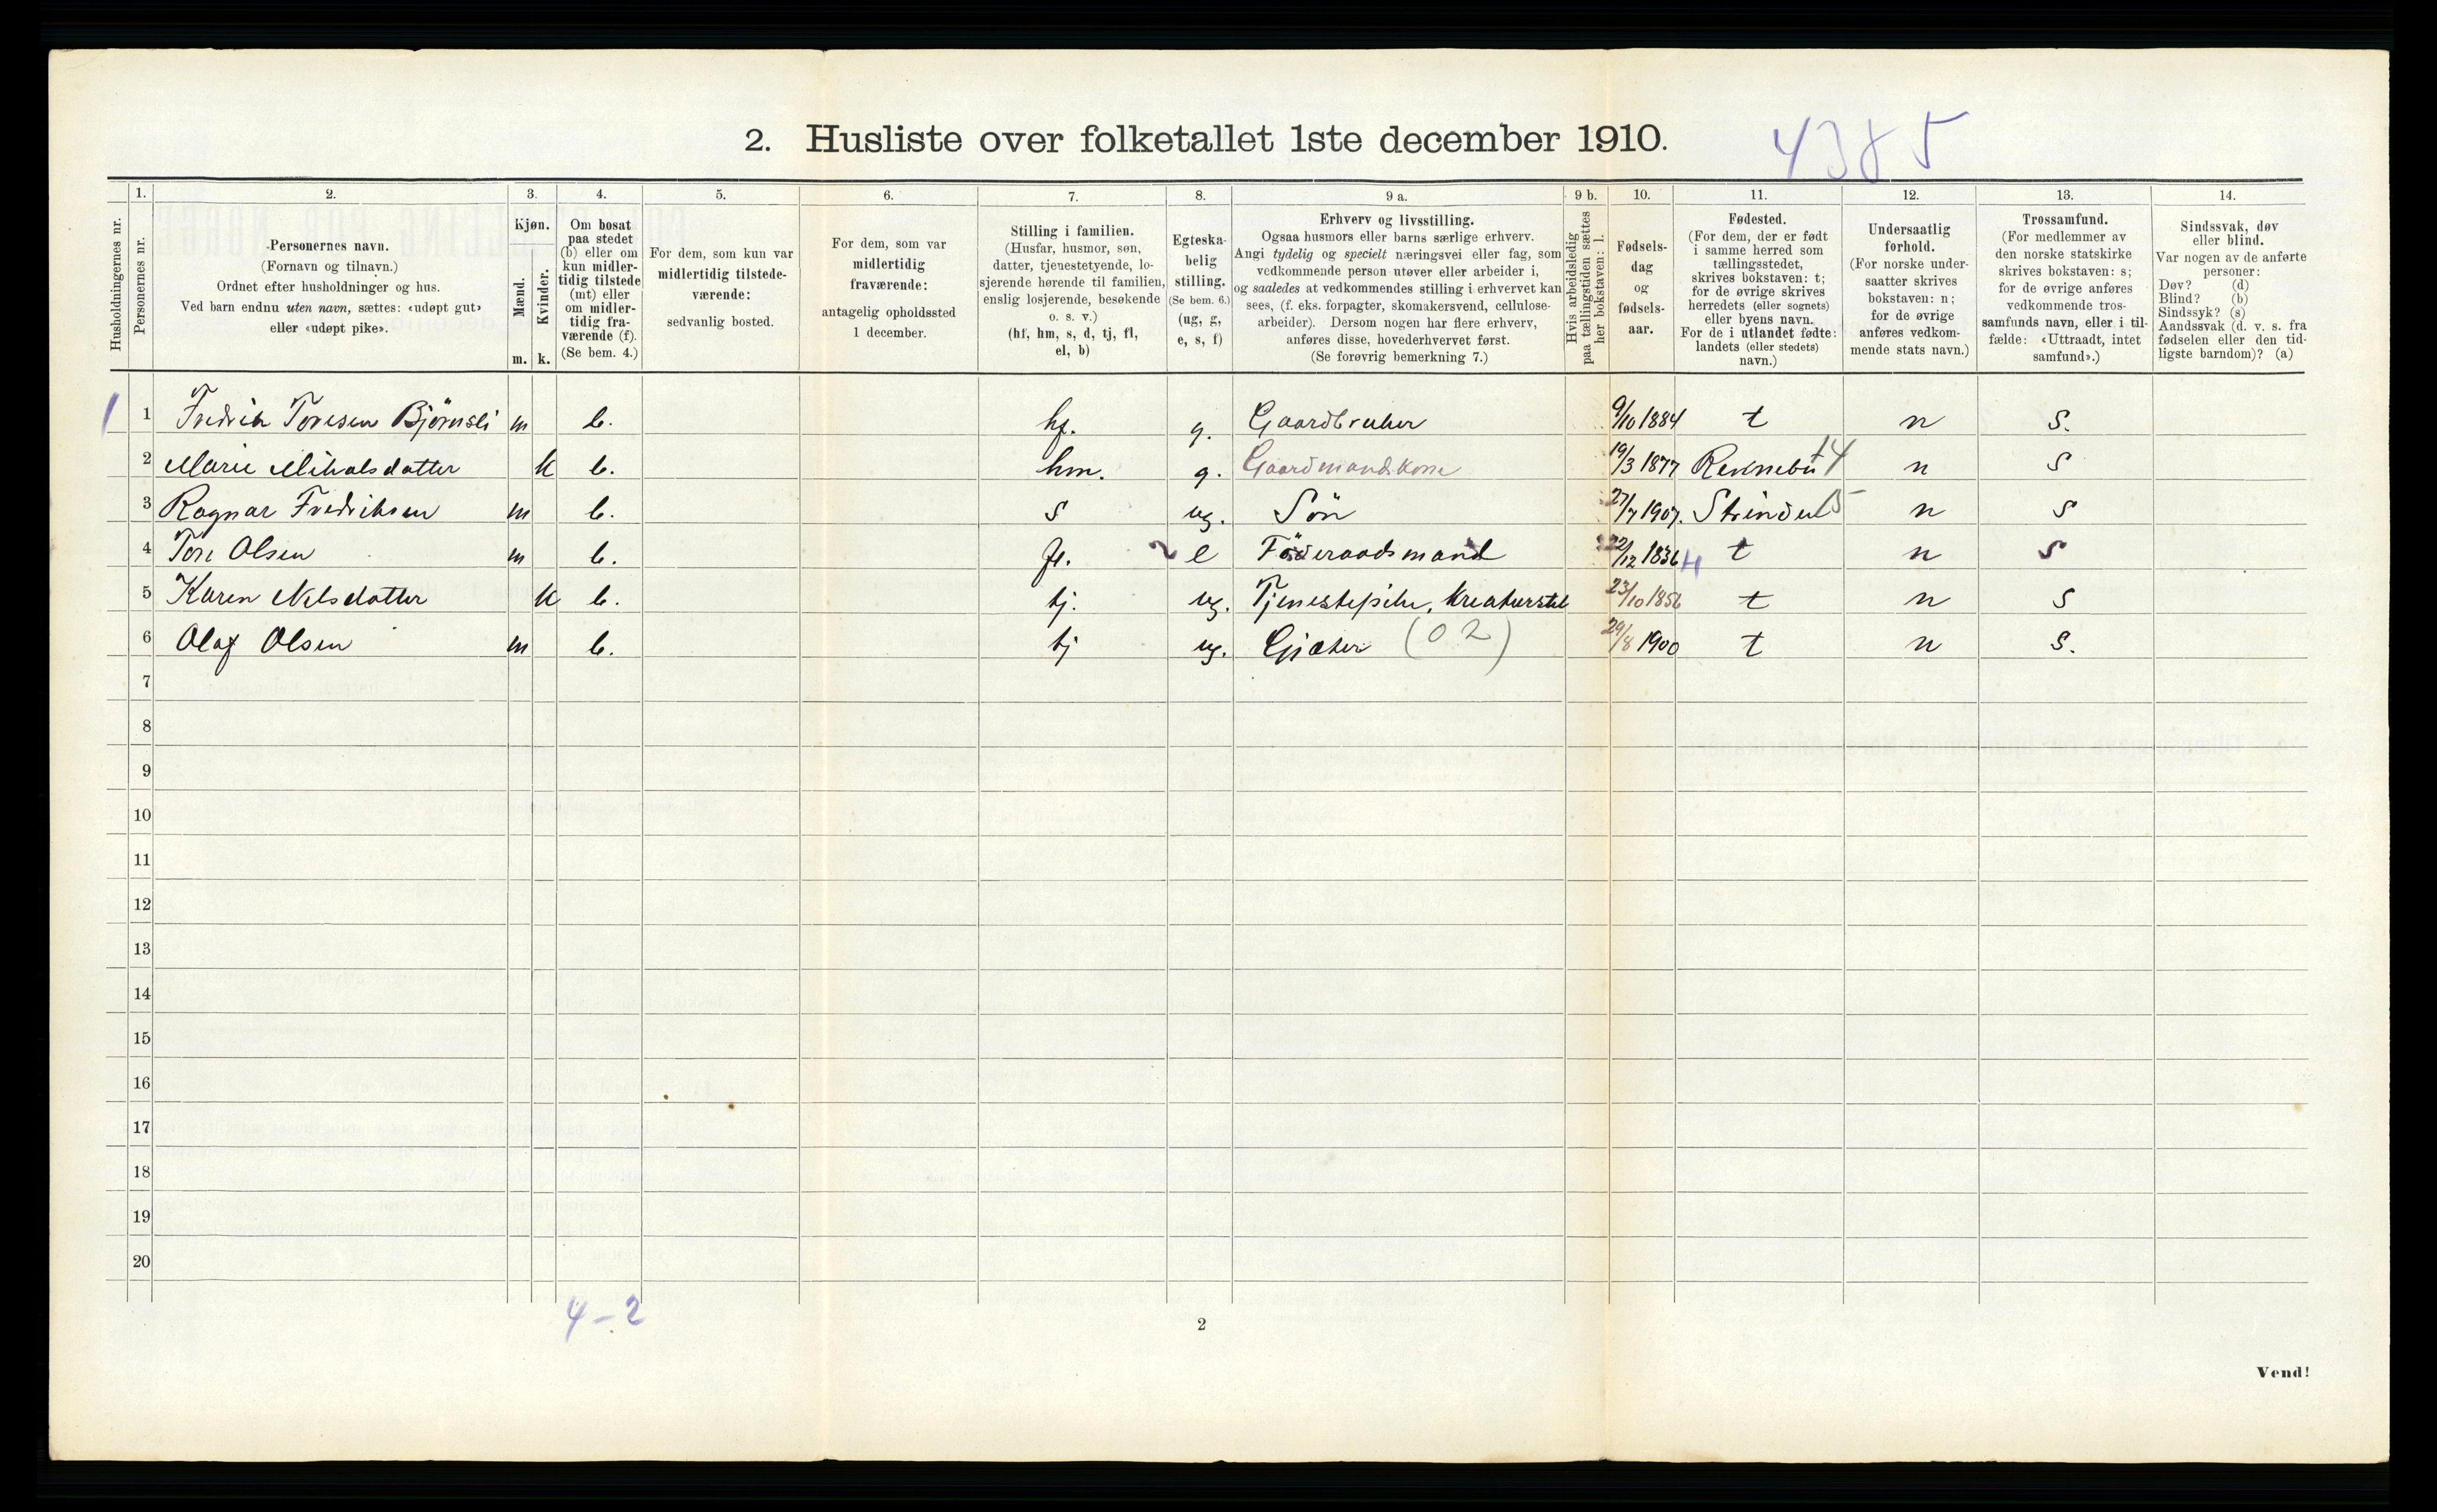 2. Husliste over folketallet 1ste december 1910.
4385
Husholdningernes nr.
1.
Personernes nr.
2.
Personernes navn.
(Fornavn og tilnavn.)
Ordnet efter husholdninger og hus.
Ved barn endnu uten navn, sættes: «udøpt gut»
eller «udøpt pike».
3.
Kjøn.
Mænd.
Kvinder.
m. k.
4.
Om bosat
paa stedet
(b) eller om
kun midler-
tidig tilstede
(mt) eller
om midler-
tidig fra-
værende (f).
(Se bem. 4.)
5.
For dem, som kun var
midlertidig tilstede-
værende:
sedvanlig bosted.
6.
For dem, som var
midlertidig
fraværende:
antagelig opholdssted
1 december.
7.
Stilling i familien.
(Husfar, husmor, søn,
datter, tjenestetyende, lo-
sjerende hørende til familien,
enslig losjerende, besøkende
o. s. v.)
(hf, hm, s, d, tj, fl,
el, b)
8.
Egteska-
belig
stilling.
(Se bem. 6.)
(ug, g,
e, s, f)
9 a.
Erhverv og livsstilling.
Ogsaa husmors eller barns særlige erhverv.
Angi tydelig og specielt næringsvei eller fag, som
vedkommende person utøver eller arbeider i,
og saaledes at vedkommendes stilling i erhvervet kan
sees, (f. eks. forpagter, skomakersvend, cellulose-
arbeider). Dersom nogen har flere erhverv,
anføres disse, hovederhvervet først.
(Se forøvrig bemerkning 7.)
9 b.
Hvis arbeidsledig
paa tællingstiden sættes
her bokstaven: l.
10.
Fødsels-
dag
og
fødsels-
aar.
11.
Fødested.
(For dem, der er født
i samme herred som
tællingsstedet,
skrives bokstaven: t;
for de øvrige skrives
herredets (eller sognets)
eller byens navn.
For de i utlandet fødte:
landets (eller stedets)
navn.)
12.
Undersaatlig
forhold.
(For norske under-
saatter skrives
bokstaven: n;
for de øvrige
anføres vedkom-
mende stats navn.)
13.
Trossamfund.
(For medlemmer av
den norske statskirke
skrives bokstaven: s;
for de øvrige anføres
vedkommende tros-
samfunds navn, eller i til-
fælde: «Uttraadt, intet
samfund».)
14.
Sindssvak, døv
eller blind.
Var nogen av de anførte
personer:
Døv? (d)
Blind? (b)
Sindssyk? (s)
Aandssvak (d. v. s. fra
fødselen eller den tid-
ligste barndom)? (a)
1 1 Fredrik Toresen Björnsli m b. hf. g. Gaardbruker 9/10 1884 t n s.
2 Marie Mikalsdatter k b. hm. g. Gaardmandskone 19/3 1877 Rennebu n s
3 Ragnar Fredriksen m b. s ug. Sön 27/7 1907. Strinden n s
4 Tore Olsen m b. fl. 2 e Föderaadsmand 22/12 1836 t n s
5 Karen Nilsdatter k b. tj. ug. Tjenestepike, kreaturstel 23/10 1856 t n s
6 Olaf Olsen m b. tj ug. Gjæter (02) 29/8 1900 t n s.
7
8
9
10
11
12
13
14
15
16
17
18
19
20
4-2
2
Vend!